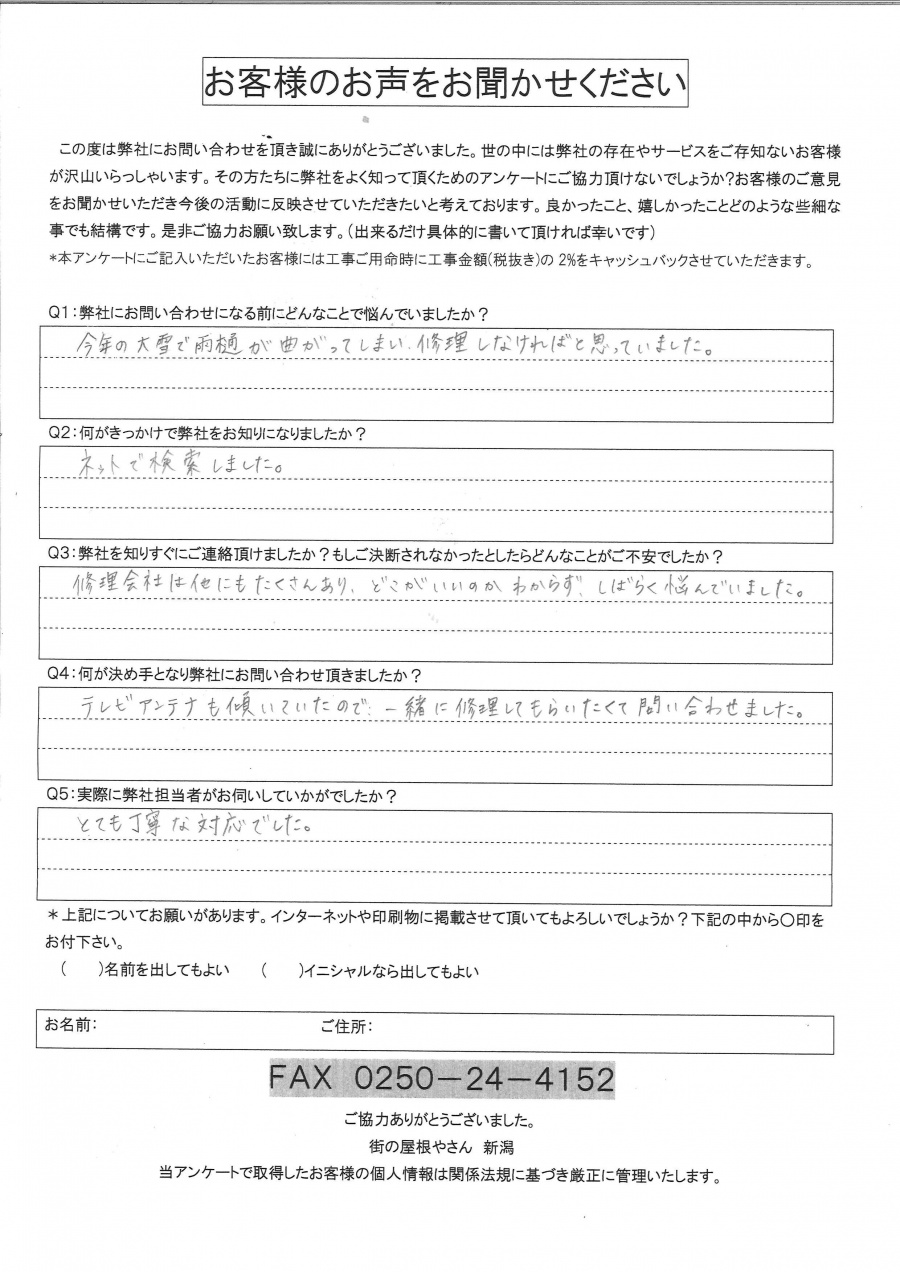 お客様のお声をお聞かせください
この度は弊社にお問い合わせを頂き誠にありがとうございました。世の中には弊社の存在やサービスをご存知ないお客様
が沢山いらっしゃいます。その方たちに弊社をよく知って頂くためのアンケートにご協力頂けないでしょうか?お客様のご意見
をお聞かせいただき今後の活動に反映させていただきたいと考えております。良かったこと、嬉しかったことどのような些細な
事でも結構です。是非ご協力お願い致します。(出来るだけ具体的に書いて頂ければ幸いです)
*本アンケートにご記入いただいたお客様には工事ご用命時に工事金額(税抜き)の 2%をキャッシュバックさせていただきます。
Q1:弊社にお問い合わせになる前にどんなことで悩んでいましたか?
今年の大雪で雨樋が曲がってしまい、修理しなければと思っていました。
Q2:何がきっかけで弊社をお知りになりましたか?
ネットで検索しました。
Q3:弊社を知りすぐにご連絡頂けましたか?もしご決断されなかったとしたらどんなことがご不安でしたか?
修理会社は他にもたくさんあり、どこがいいのかわからず、しばらく悩んでいました。
Q4:何が決め手となり弊社にお問い合わせ頂きましたか?
テレビアンテナも傾いていたので、一緒に修理してもらいたくて問い合わせました。
Q5:実際に弊社担当者がお伺いしていかがでしたか?
とても丁寧な対応でした。
*上記についてお願いがあります。インターネットや印刷物に掲載させて頂いてもよろしいでしょうか?下記の中から〇印を
お付下さい。
( )名前を出してもよい ( )イニシャルなら出してもよい
お名前: ご住所:
FAX 0250-24-4152
ご協力ありがとうございました。
街の屋根やさん 新潟
当アンケートで取得したお客様の個人情報は関係法規に基づき厳正に管理いたします。